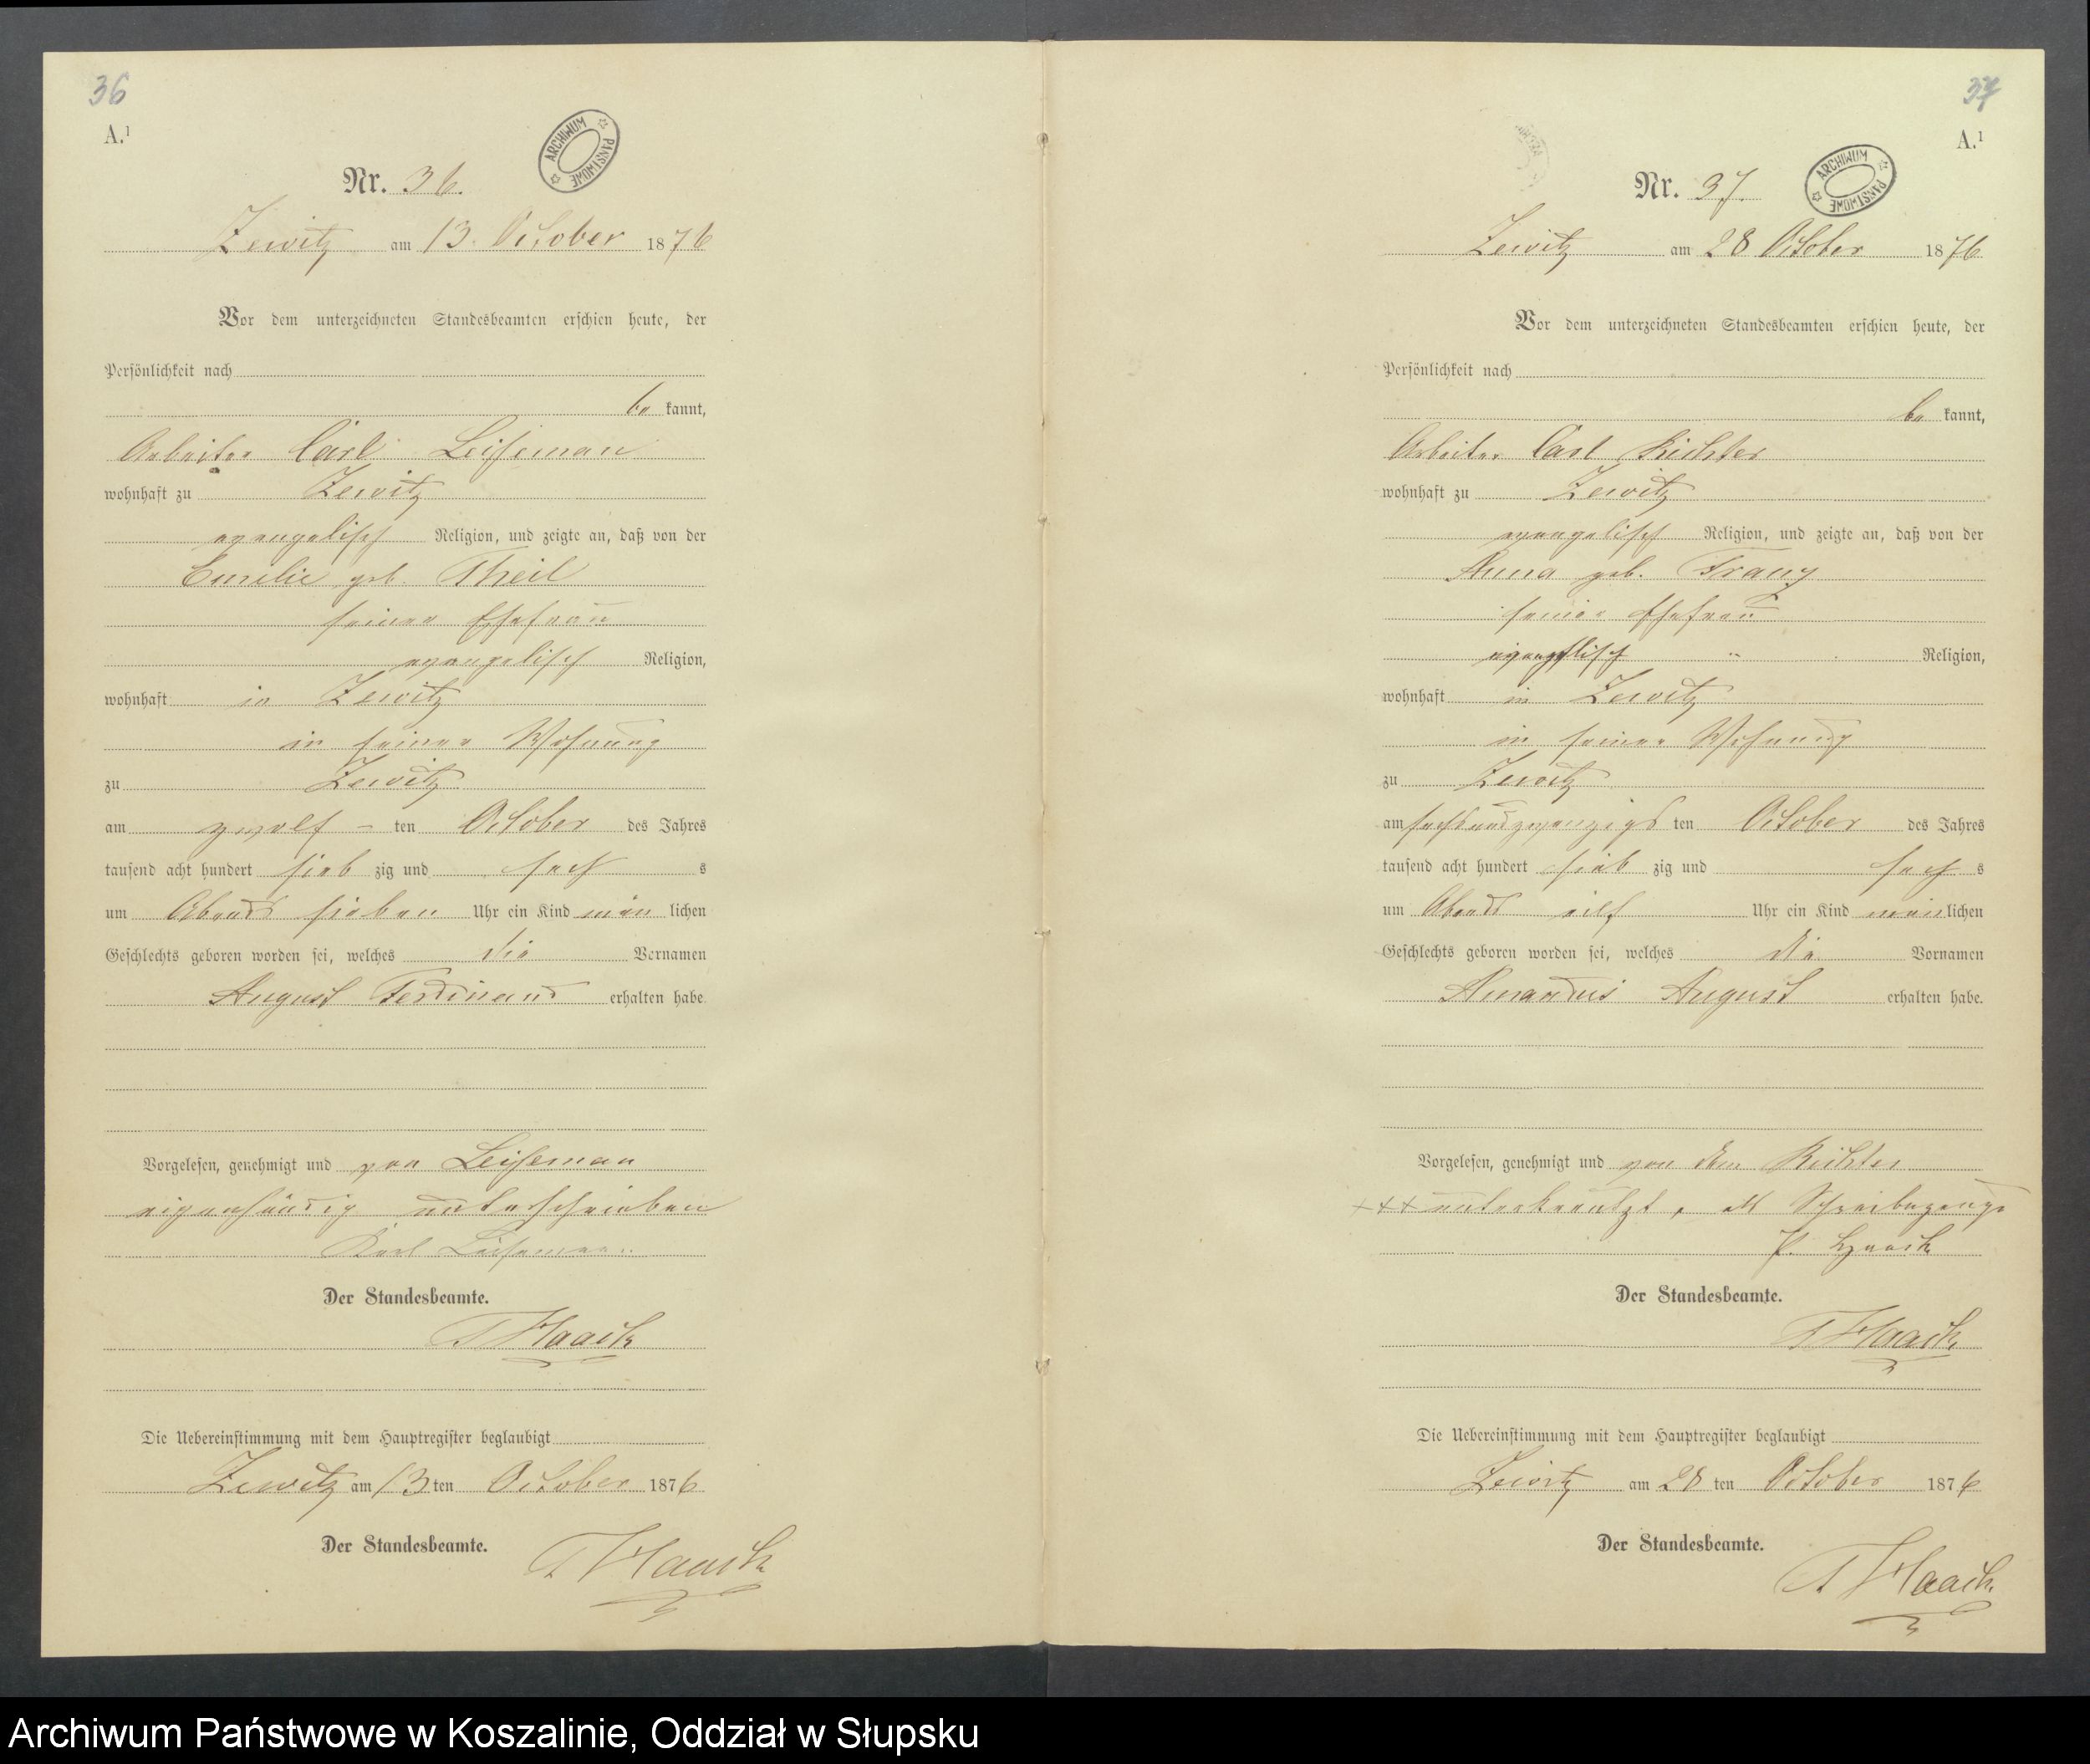 36
A.¹
ARCHIWUM PAŃSTWOWE
Nr. 36.
Zewitz am 13. October 1876
Vor dem unterzeichneten Standesbeamten erschien heute, der
Persönlichkeit nach
be kannt,
Arbeiter Carl Leiseman
wohnhaft zu Zewitz
evangelisch Religion, und zeigte an, daß von der
Emilie geb. Theil
seiner Ehefrau
evangelisch Religion,
wohnhaft in Zewitz
in seiner Wohnung
zu Zewitz
am zwölf - ten October des Jahres
tausend acht hundert sieb zig und sech s
um Abends sieben Uhr ein Kind män lichen
Geschlechts geboren worden sei, welches die Vornamen
August Ferdinand erhalten habe
Vorgelesen, genehmigt und von Leiseman
eigenhändig unterschrieben
Karl Leisemann
Der Standesbeamte.
Haack
Die Uebereinstimmung mit dem Hauptregister beglaubigt
Zewitz am 13 ten October 1876
Der Standesbeamte.
Haack
37
A.¹
ARCHIWUM PAŃSTWOWE
Nr. 37.
Zewitz am 28 October 1876
Vor dem unterzeichneten Standesbeamten erschien heute, der
Persönlichkeit nach
be kannt,
Arbeiter Carl Richter
wohnhaft zu Zewitz
evangelisch Religion, und zeigte an, daß von der
Anna geb. Franz
seiner Ehefrau
evangelisch Religion,
wohnhaft in Zewitz
in seiner Wohnung
zu Zewitz
am sechsundzwanzigs ten October des Jahres
tausend acht hundert sieb zig und sech s
um Abends eilf Uhr ein Kind män lichen
Geschlechts geboren worden sei, welches die Vornamen
Amandus August erhalten habe.
Vorgelesen, genehmigt und von dem Richter
+++ unterkreutzt, als Schreibezeuge
Der Standesbeamte.
Haack
Die Uebereinstimmung mit dem Hauptregister beglaubigt
Zewitz am 28 ten October 1876
Der Standesbeamte.
Haack
Archiwum Państwowe w Koszalinie, Oddział w Słupsku